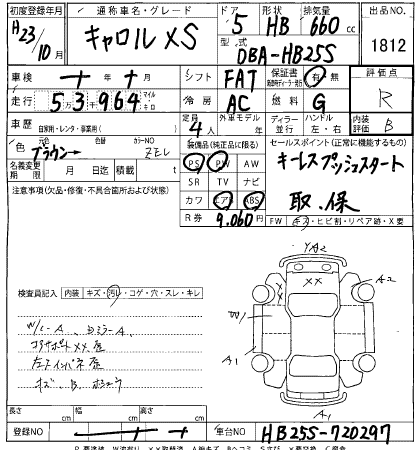 初度登録年月 通称車名・グレード ドア 形状 排気量 出品NO
H23/10月 キャロル XS 5 HB 660 cc 1812
型式 DBA-HB25S
車検 年 月 シフト FAT 保証書 有 無 評価点 R
走行 53千964 マイル キロ 冷房 AC 燃料 G
車歴 自家用・レンタ・事業用( ) 定員 4人 外車モデル 年 ディーラー 並行 ハンドル 左・右 内装評価 B
色 元色 ブラウン カラーNO ZEL
装備品(純正品に限る) セールスポイント(正常に機能するもの)
名義変更期限 月 日迄 積載 t PS PW AW キーレス プッシュスタート
注意事項(欠品・修復・不具合箇所および状態) SR TV ナビ
カワ エアB ABS 取.保
R券 9.060円 FW キズ・ヒビ割・リペア跡・X要
YA2
XX
A2
検査員記入 内装 キズ・汚レ・コゲ・穴・スレ・キレ
W/
A1
A1
長さ cm 幅 cm 高さ cm
登録NO 車台NO HB25S-720297